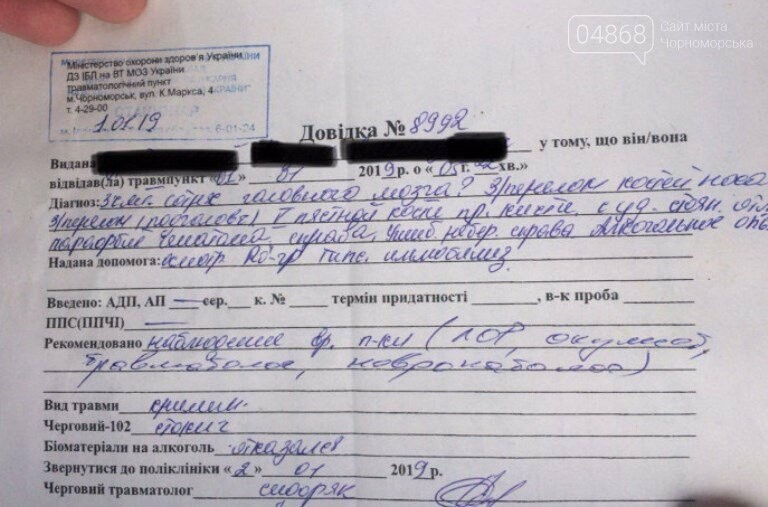 04868 Сайт міста
Чорноморська
Міністерство охорони здоров'я України
ДЗ ІБЛ на ВТ МОЗ України
травматологічний пункт
м.Чорноморськ, вул. К.Маркса, 4
т. 4-29-00
1.01.19
6-01-24
Довідка № 8992
Видана у тому, що він/вона
відвідав(ла) травмпункт «01» 01 2019р. о «05г. хв.»
Діагноз: головного мозга? З/перелом костей носа
З/перелом V пястной кости пр. кисти, с уд. стоян.
гематома справа. Ушиб справа Алкогольное
Надана допомога: осмотр Rö-гр гипс. иммобилиз.
Введено: АДП, АП — сер. к. № термін придатності , в-к проба
ППС(ППЧІ) —
Рекомендовано наблюдение вр. п-ки (ЛОР, окулист,
травматолог, невропатолог)
Вид травми кримин.
Черговий-102
Біоматеріали на алкоголь отказался
Звернутися до поліклініки «2» 01 2019р.
Черговий травматолог сидоряк